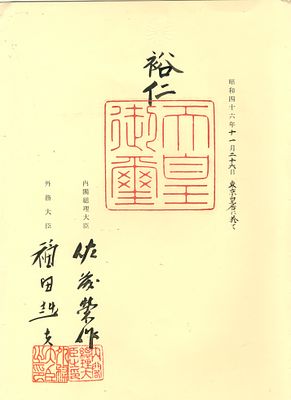 昭和四十六年十一月二十六日 東京皇居に於て
裕仁
天皇御璽
内閣総理大臣
佐藤榮作
外務大臣
福田赳夫